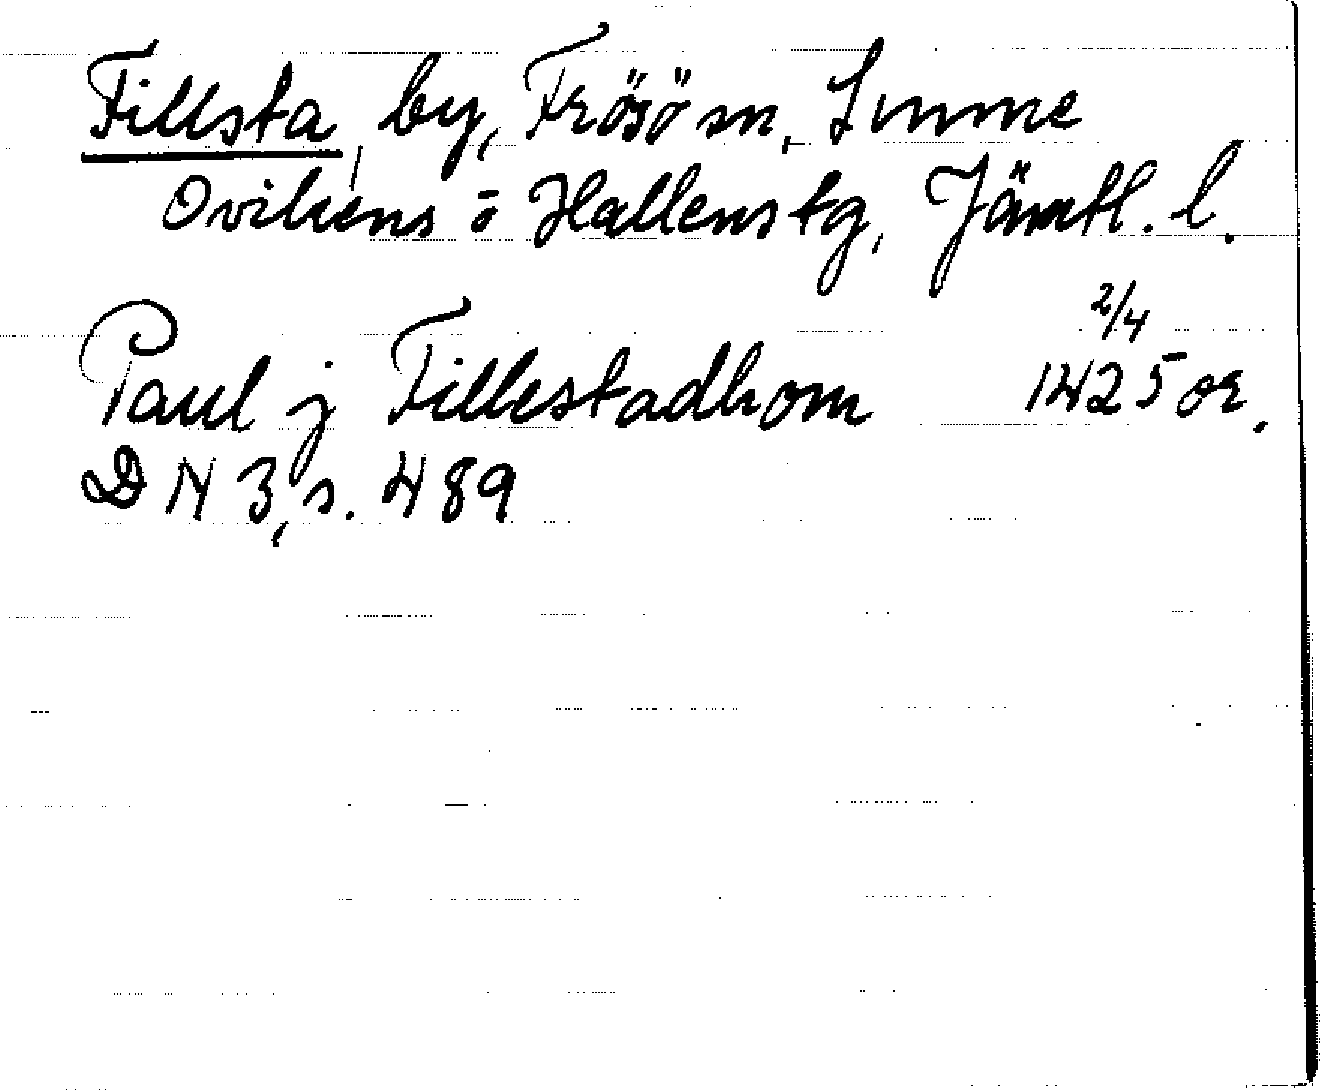 Fillsta, by, Frösö sn, Sunne
Ovikens o Hallens tg, Jämtl. l.
Paul j Fillestadhom 2/4 1425 or.
DN 3, s. 489